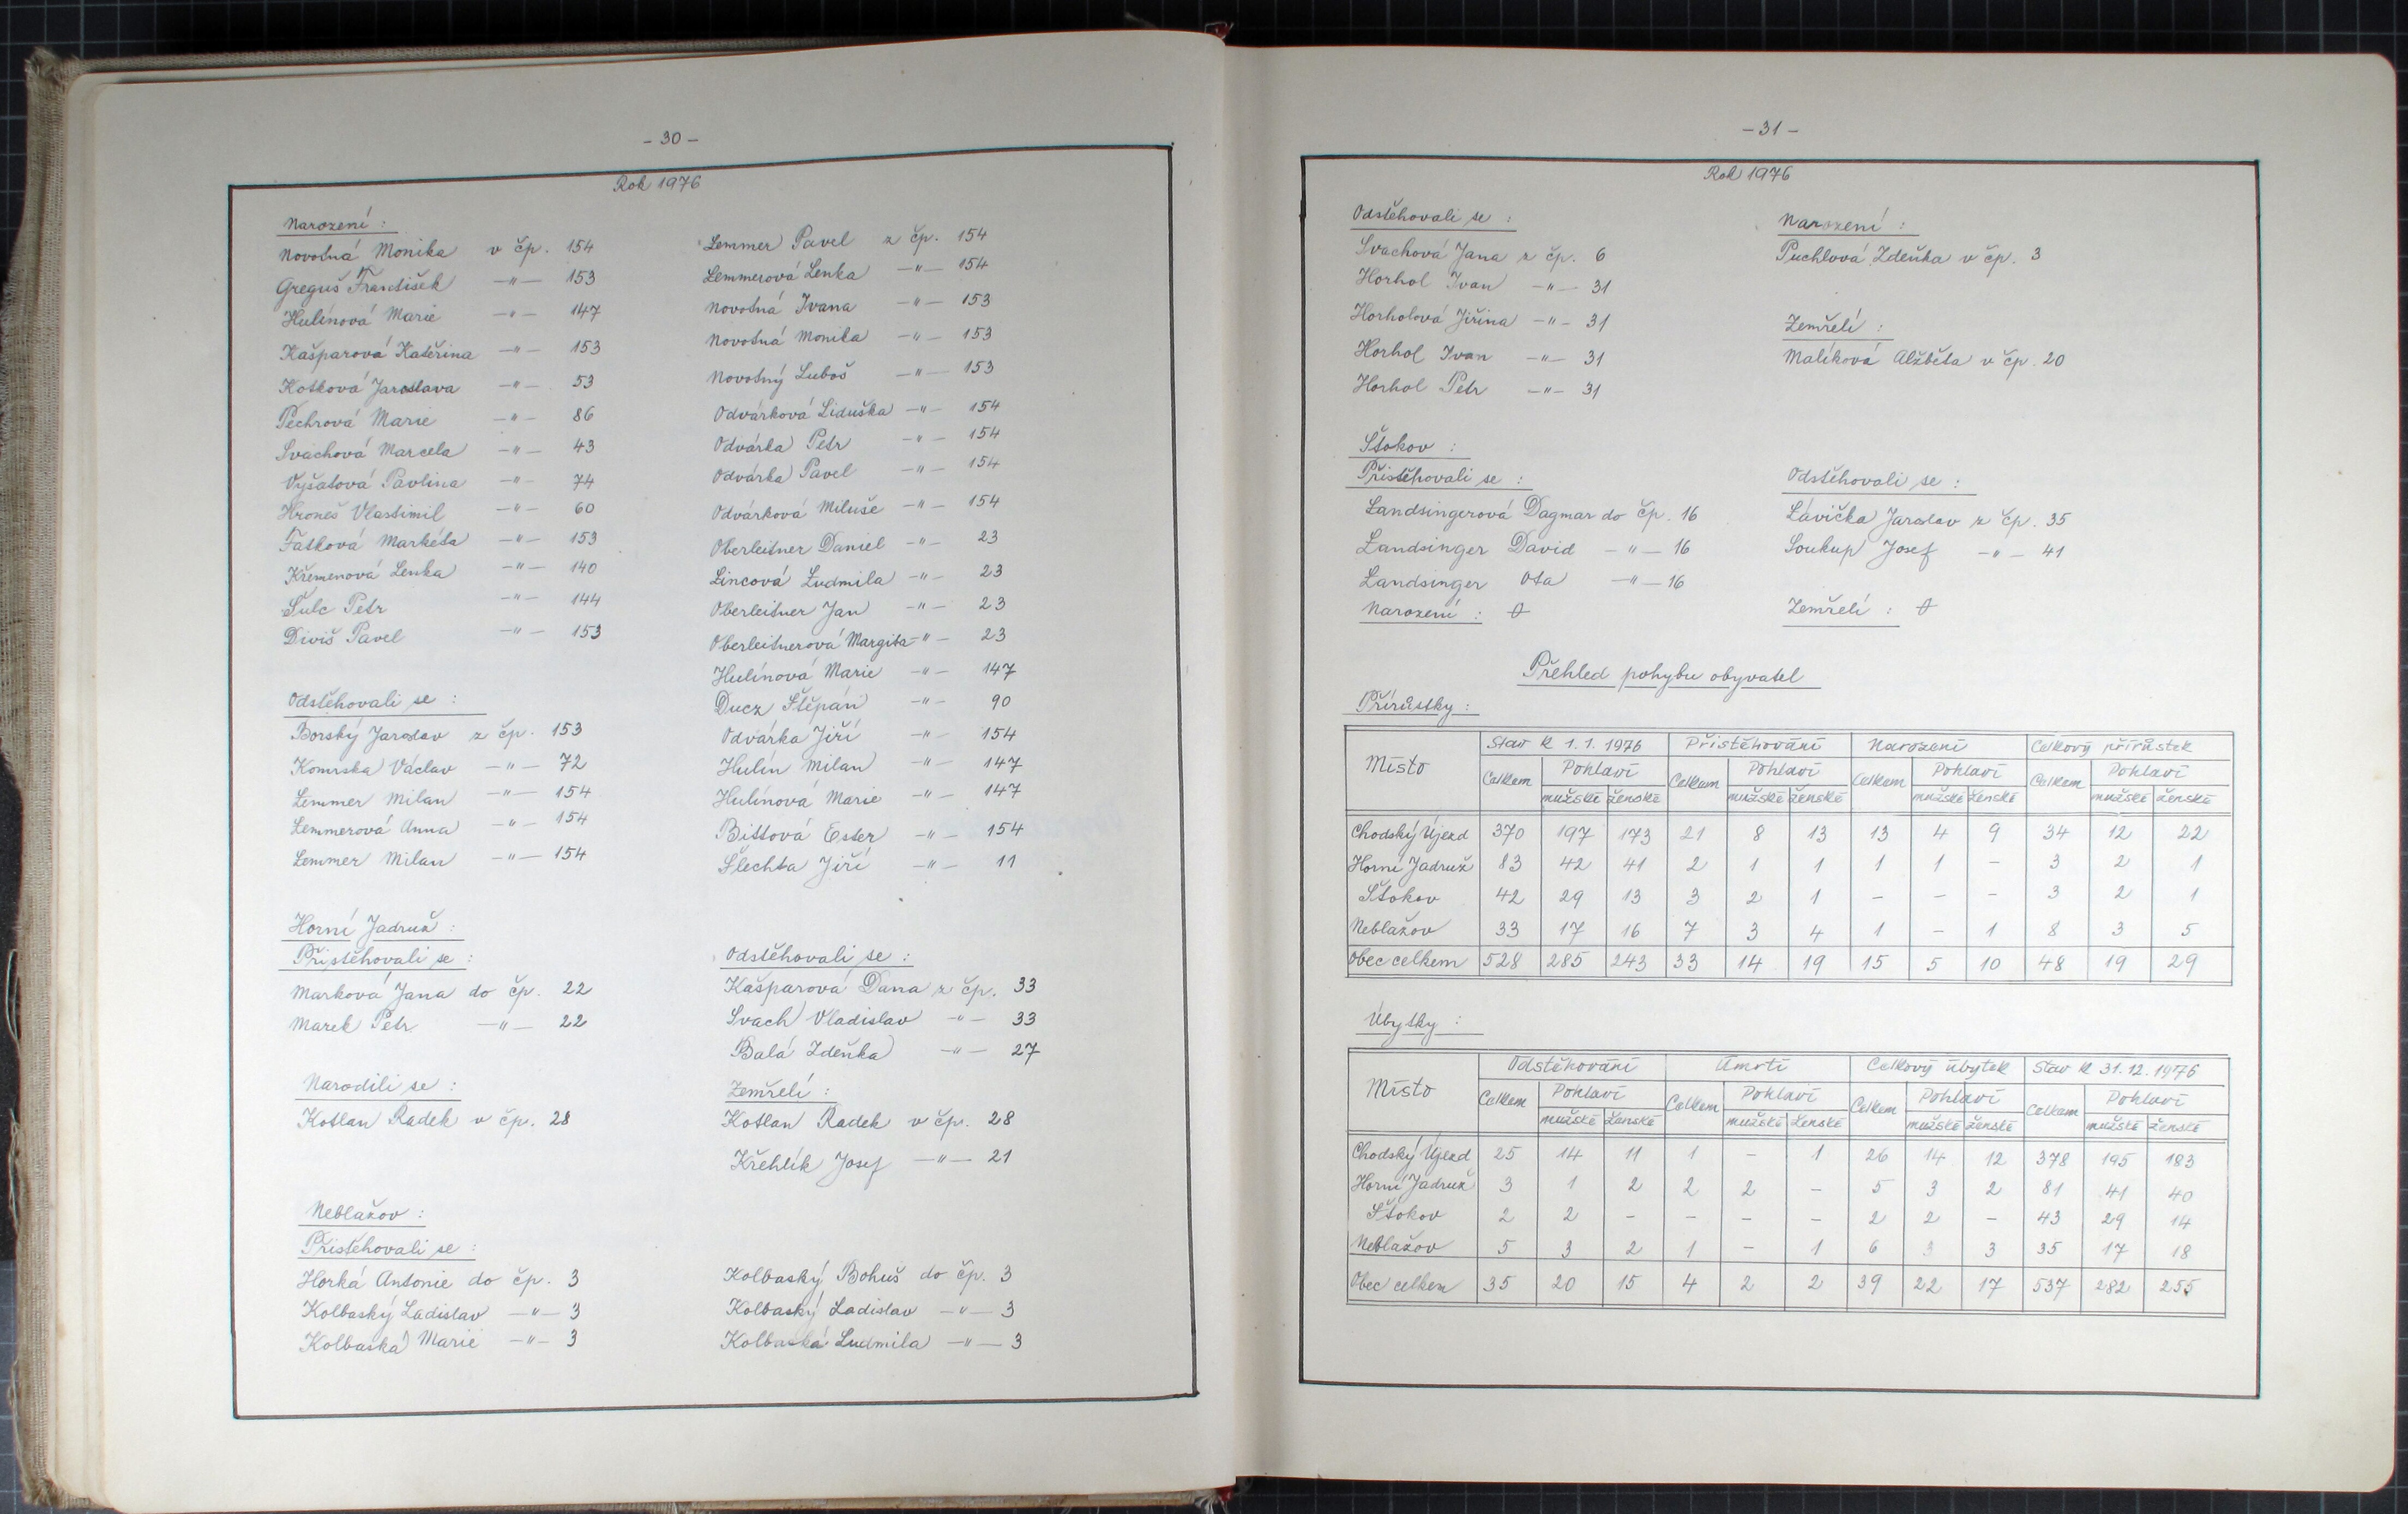 - 30 -
Rok 1976
Narození :
Novotná Monika v čp. 154
Greguš František -"- 153
Hulínová Marie -"- 147
Kašparová Kateřina -"- 153
Kotková Jaroslava -"- 53
Pechrová Marie -"- 86
Svachová Marcela -"- 43
Vyšatová Pavlína -"- 74
Hroneš Vlastimil -"- 60
Fatková Markéta -"- 153
Křemenová Lenka -"- 140
Šulc Petr -"- 144
Diviš Pavel -"- 153
Odstěhovali se :
Borský Jaroslav z čp. 153
Komrska Václav -"- 72
Lemmer Milan -"- 154
Lemmerová Anna -"- 154
Lemmer Milan -"- 154
Lemmer Pavel z čp. 154
Lemmerová Lenka -"- 154
Novotná Ivana -"- 153
Novotná Monika -"- 153
Novotný Luboš -"- 153
Odvárková Liduška -"- 154
Odvárka Petr -"- 154
Odvárka Pavel -"- 154
Odvárková Miluše -"- 154
Oberleitner Daniel -"- 23
Lincová Ludmila -"- 23
Oberleitner Jan -"- 23
Oberleitnerová Margita -"- 23
Hulínová Marie -"- 147
Ducz Štěpán -"- 90
Odvárka Jiří -"- 154
Hulín Milan -"- 147
Hulínová Marie -"- 147
Bittová Ester -"- 154
Šlechta Jiří -"- 11
Horní Jadruž :
Přistěhovali se :
Marková Jana do čp. 22
Marek Petr -"- 22
Odstěhovali se :
Kašparová Dana z čp. 33
Svach Vladislav -"- 33
Balá Zdeňka -"- 27
Narodili se :
Kotlan Radek v čp. 28
Zemřelí :
Kotlan Radek v čp. 28
Křehlík Josef -"- 21
Neblažov :
Přistěhovali se :
Horká Antonie do čp. 3
Kolbaský Ladislav -"- 3
Kolbaská Marie -"- 3
Kolbaský Bohuš do čp. 3
Kolbaský Ladislav -"- 3
Kolbaská Ludmila -"- 3
- 31 -
Rok 1976
Odstěhovali se :
Svachová Jana z čp. 6
Horhol Ivan -"- 31
Horholová Jiřina -"- 31
Horhol Ivan -"- 31
Horhol Petr -"- 31
Narození :
Puchlová Zdeňka v čp. 3
Zemřelí :
Malíková Alžběta v čp. 20
Štokov :
Přistěhovali se :
Landsingerová Dagmar do čp. 16
Landsinger David -"- 16
Landsinger Ota -"- 16
Narození : 0
Odstěhovali se :
Lavička Jaroslav z čp. 35
Soukup Josef -"- 41
Zemřelí : 0
Přehled pohybu obyvatel
Přírůstky :
Místo Stav k 1. 1. 1976 Přistěhování Narození Celkový přírůstek
Celkem Pohlaví Celkem Pohlaví Celkem Pohlaví Celkem Pohlaví
mužské ženské mužské ženské mužské ženské mužské ženské
Chodský Újezd 370 197 173 21 8 13 13 4 9 34 12 22
Horní Jadruž 83 42 41 2 1 1 1 1 - 3 2 1
Štokov 42 29 13 3 2 1 - - - 3 2 1
Neblažov 33 17 16 7 3 4 1 - 1 8 3 5
Obec celkem 528 285 243 33 14 19 15 5 10 48 19 29
Úbytky :
Místo Odstěhování Úmrtí Celkový úbytek Stav k 31. 12. 1976
Celkem Pohlaví Celkem Pohlaví Celkem Pohlaví Celkem Pohlaví
mužské ženské mužské ženské mužské ženské mužské ženské
Chodský Újezd 25 14 11 1 - 1 26 14 12 378 195 183
Horní Jadruž 3 1 2 2 2 - 5 3 2 81 41 40
Štokov 2 2 - - - - 2 2 - 43 29 14
Neblažov 5 3 2 1 - 1 6 3 3 35 17 18
Obec celkem 35 20 15 4 2 2 39 22 17 537 282 255